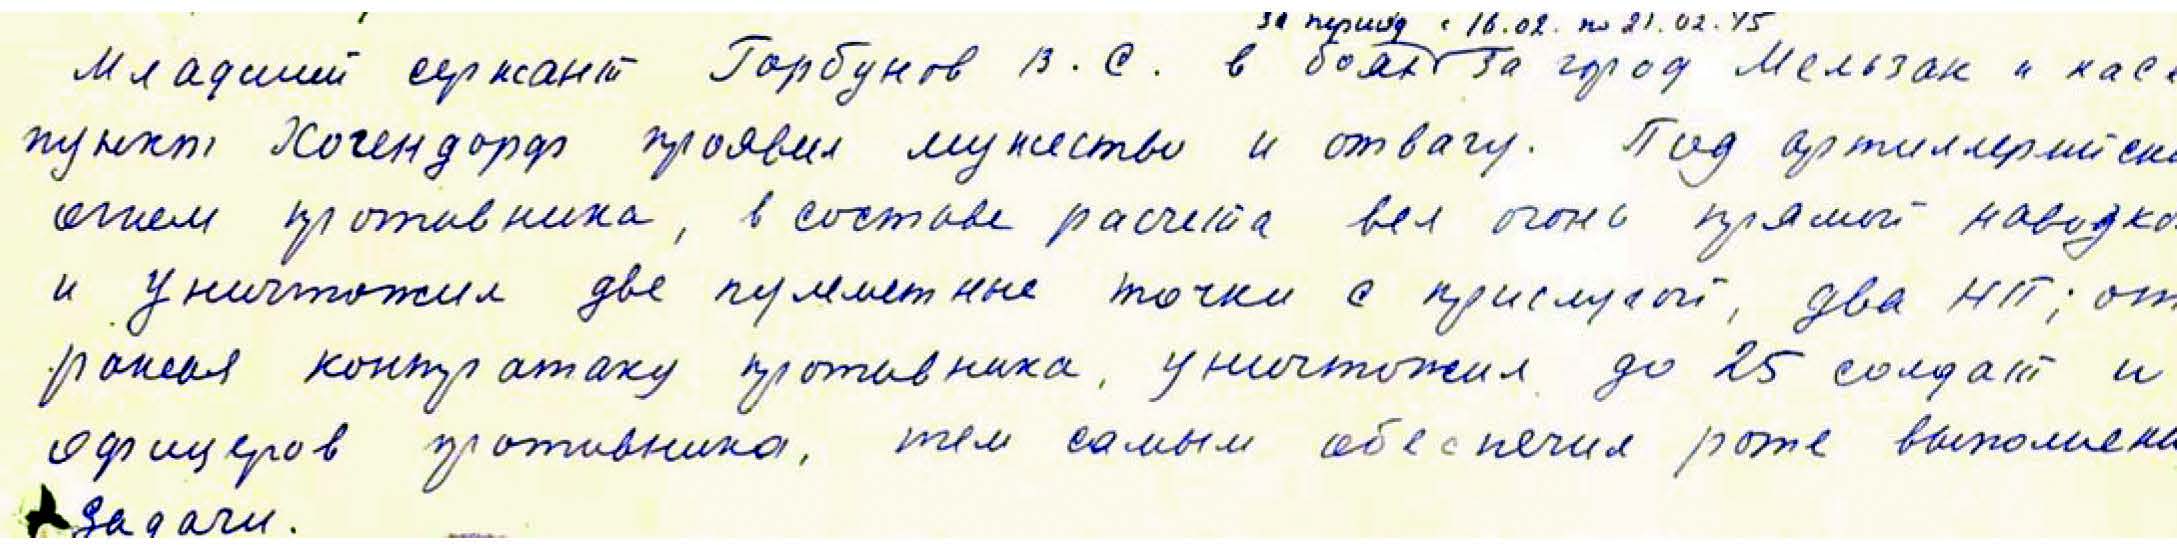 за период с 16.02. по 21.02.45
Младший сержант Горбунов В. С. в боях за город Мельзак и насе
пункт Хогендорф проявил мужество и отвагу. Под артиллерийски
огнем противника, в составе расчета вел огонь прямой наводко
и уничтожил две пулеметные точки с прислугой, два НП; от
ражая контратаку противника, уничтожил до 25 солдат и
офицеров противника, тем самым обеспечил роте выполнени
задачи.